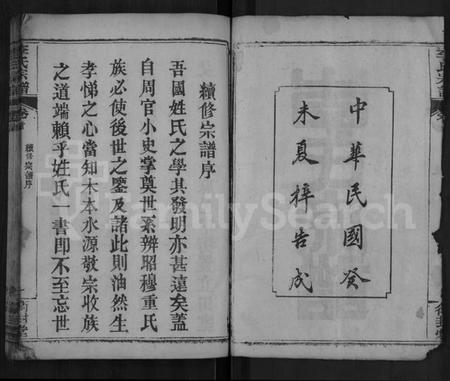 中華民國癸
未夏梓告成
續修宗譜序
吾國姓氏之學其發明亦甚遠矣蓋
自周官小史掌奠世系辨昭穆重氏
族必使後世之鑒及諸此則油然生
孝悌之心當知木本水源敬宗收族
之道端賴乎姓氏一書即不至忘世
續修宗譜序
李氏宗譜
FamilySearch